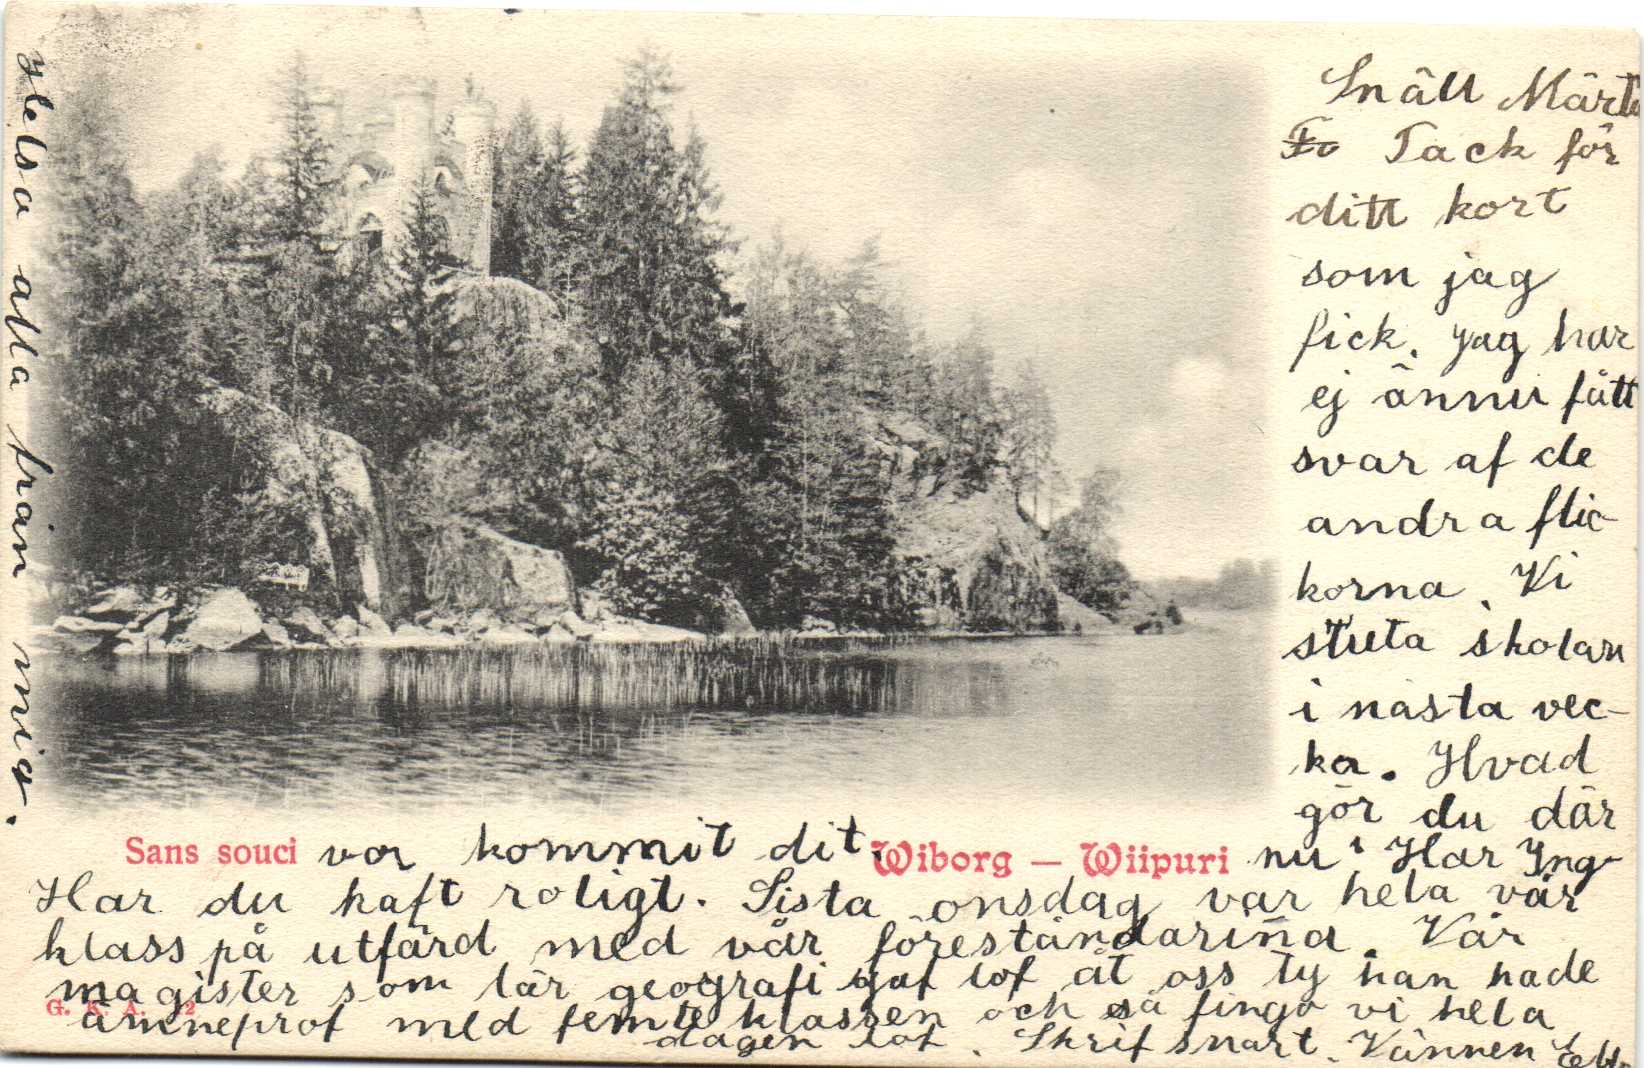 Snäll Märta
Tack för
ditt kort
som jag
fick. Jag har
ej ännu fått
svar af de
andra flic-
korna. Vi
sluta skolan
i nästa vec-
ka. Hvad
gör du där
nu? Har Ing-
vor kommit dit.
Har du haft roligt. Sista onsdag var hela vår
klass på utfärd med vår föreståndarinna. Vår
magister som lär geografi gaf lof åt oss ty han hade
ämneprof med femte klassen och så fingo vi hela
dagen lof. Skrif snart. Vännen
Helsa alla från mig.
Sans souci
Wiborg — Wiipuri
G. K. A. 12